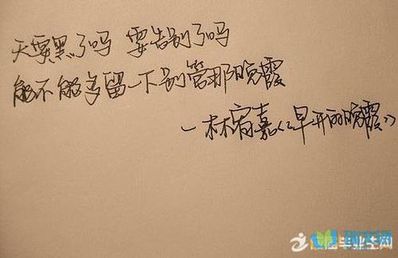 天要黑了吗 要告别了吗
能不能多留一下别管那晚霞
—林宥嘉《早开的晚霞》
毕业生网